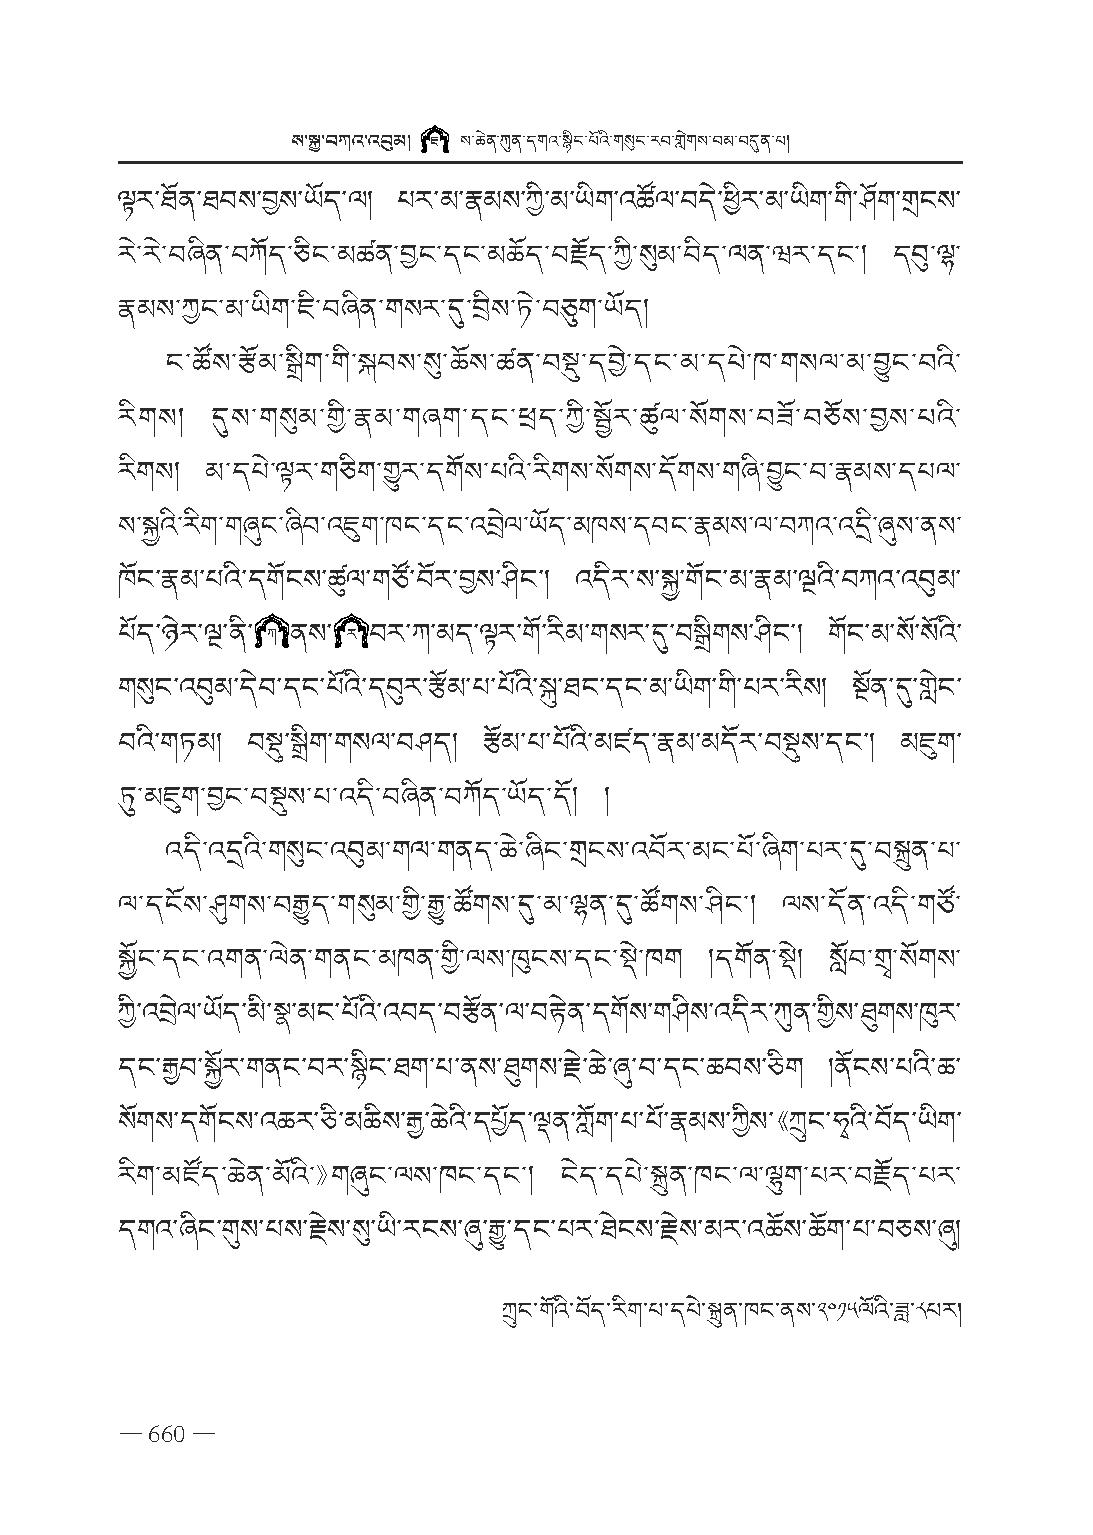 ས་སྐྱ་བཀའ་འབུམ། ཇ ས་ཆེན་ཀུན་དགའ་སྙིང་པོའི་གསུང་རབ་གླེགས་བམ་བདུན་པ།
ལྟར་ཐོན་ཐབས་བྱས་ཡོད་ལ། པར་མ་རྣམས་ཀྱི་མ་ཡིག་འཚོལ་བདེ་ཕྱིར་མ་ཡིག་གི་ཤོག་གྲངས་
རེ་རེ་བཞིན་བཀོད་ཅིང་མཚན་བྱང་དང་མཆོད་བརྗོད་ཀྱི་སུམ་བིད་ལན་ཝར་དང་། དབུ་ལྷ་
རྣམས་ཀྱང་མ་ཡིག་ཇི་བཞིན་གསར་དུ་བྲིས་ཏེ་བཅུག་ཡོད།
ང་ཚོས་རྩོམ་སྒྲིག་གི་སྐབས་སུ་ཆོས་ཚན་བསྡུ་དབྱེ་དང་མ་དཔེ་ཁ་གསལ་མ་བྱུང་བའི་
རིགས། དུས་གསུམ་གྱི་རྣམ་གཞག་དང་ཕྲད་ཀྱི་སྦྱོར་ཚུལ་སོགས་བཟོ་བཅོས་བྱས་པའི་
རིགས། མ་དཔེ་ལྟར་གཅིག་གྱུར་དགོས་པའི་རིགས་སོགས་དོགས་གཞི་བྱུང་བ་རྣམས་དཔལ་
ས་སྐྱའི་རིག་གཞུང་ཞིབ་འཇུག་ཁང་དང་འབྲེལ་ཡོད་མཁས་དབང་རྣམས་ལ་བཀའ་འདྲི་ཞུས་ནས་
ཁོང་རྣམ་པའི་དགོངས་ཚུལ་གཙོ་བོར་བྱས་ཤིང་། འདིར་ས་སྐྱ་གོང་མ་རྣམ་ལྔའི་བཀའ་འབུམ་
པོད་ཉེར་ལྔ་ནི་ཀ་ནས་ར་བར་ཀ་མད་ལྟར་གོ་རིམ་གསར་དུ་བསྒྲིགས་ཤིང་། གོང་མ་སོ་སོའི་
གསུང་འབུམ་དེབ་དང་པོའི་དབུར་རྩོམ་པ་པོའི་སྐུ་ཐང་དང་མ་ཡིག་གི་པར་རིས། སྔོན་དུ་གླེང་
བའི་གཏམ། བསྡུ་སྒྲིག་གསལ་བཤད། རྩོམ་པ་པོའི་མཛད་རྣམ་མདོར་བསྡུས་དང་། མཇུག་
ཏུ་མཇུག་བྱང་བསྡུས་པ་འདི་བཞིན་བཀོད་ཡོད་དོ། །
འདི་འདྲའི་གསུང་འབུམ་གལ་གནད་ཆེ་ཞིང་གྲངས་འབོར་མང་པོ་ཞིག་པར་དུ་བསྐྲུན་པ་
ལ་དངོས་ཤུགས་བརྒྱུད་གསུམ་གྱི་རྒྱུ་ཚོགས་དུ་མ་ལྷན་དུ་ཚོགས་ཤིང་། ལས་དོན་འདི་གཙོ་
སྐྱོང་དང་འགན་ལེན་གནང་མཁན་གྱི་ལས་ཁུངས་དང་སྡེ་ཁག །དགོན་སྡེ། སློབ་གྲྭ་སོགས་
ཀྱི་འབྲེལ་ཡོད་མི་སྣ་མང་པོའི་འབད་བརྩོན་ལ་བརྟེན་དགོས་གཤིས་འདིར་ཀུན་གྱིས་ཐུགས་ཁུར་
དང་རྒྱབ་སྐྱོར་གནང་བར་སྙིང་ཐག་པ་ནས་ཐུགས་རྗེ་ཆེ་ཞུ་བ་དང་ཆབས་ཅིག །ནོངས་པའི་ཆ་
སོགས་དགོངས་འཆར་ཅི་མཆིས་རྒྱ་ཆེའི་དཔྱོད་ལྡན་ཀློག་པ་པོ་རྣམས་ཀྱིས་《ཀྲུང་ཧྭའི་བོད་ཡིག་
རིག་མཛོད་ཆེན་མོའི་》གཞུང་ལས་ཁང་དང་། ངེད་དཔེ་སྐྲུན་ཁང་ལ་ལྷུག་པར་བརྗོད་པར་
དགའ་ཞིང་གུས་པས་རྗེས་སུ་ཡི་རངས་ཞུ་རྒྱུ་དང་པར་ཐེངས་རྗེས་མར་འཆོས་ཆོག་པ་བཅས་ཞུ།
ཀྲུང་གོའི་བོད་རིག་པ་དཔེ་སྐྲུན་ཁང་ནས་༢༠༡༥ལོའི་ཟླ་༨པར།
— 660 —